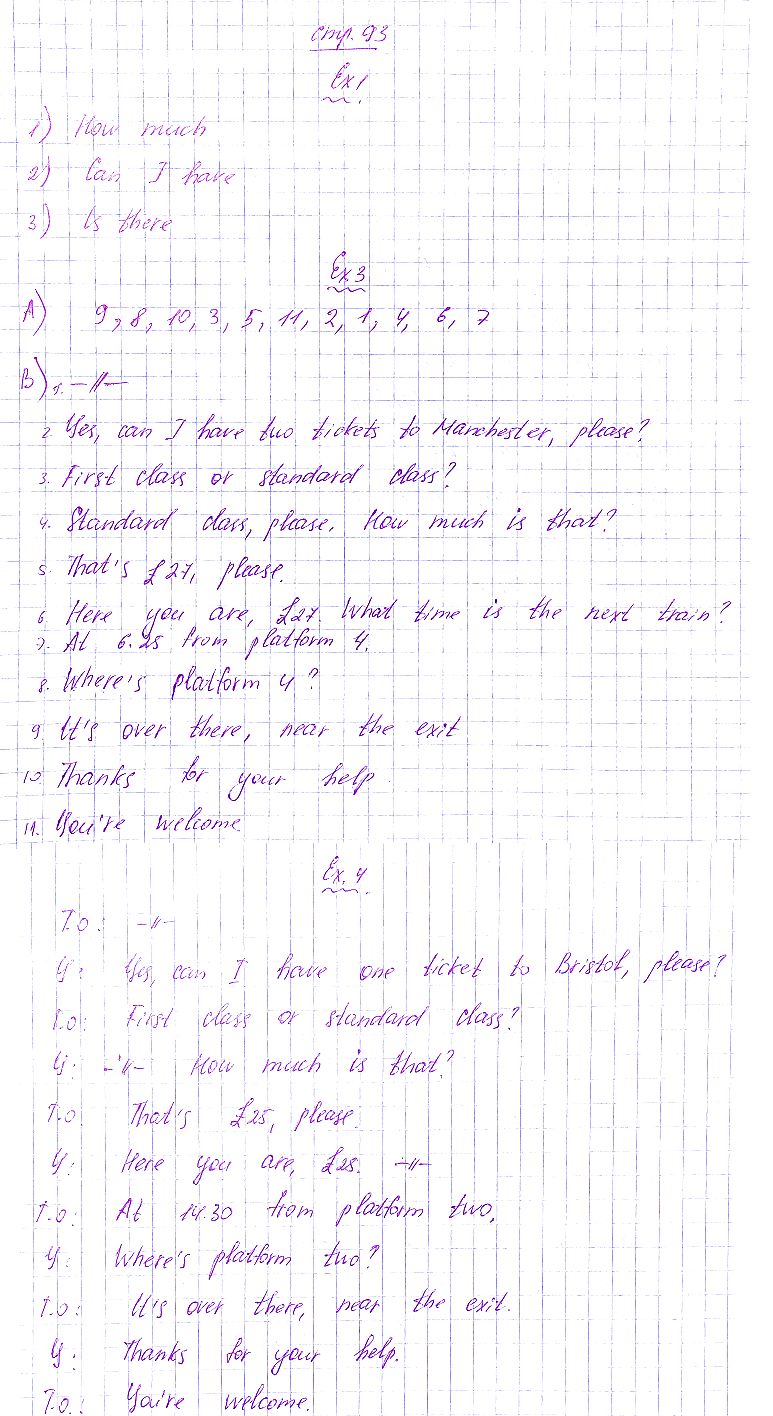 стр. 93
Ex 1.
1) How much
2) Can I have
3) Is there
Ex 3
A) 9, 8, 10, 3, 5, 11, 2, 1, 4, 6, 7
B) 1. —//—
2. Yes, can I have two tickets to Manchester, please?
3. First class or standard class?
4. Standard class, please. How much is that?
5. That's £27, please.
6. Here you are, £27. What time is the next train?
7. At 6.25 from platform 4.
8. Where's platform 4?
9. It's over there, near the exit
10. Thanks for your help.
11. You're welcome
Ex. 4.
T.O: —//—
Y: Yes, can I have one ticket to Bristol, please?
T.O: First class or standard class?
Y: —//— How much is that?
T.O: That's £25, please.
Y: Here you are, £25. —//—
T.O: At 14.30 from platform two.
Y: Where's platform two?
T.O: It's over there, near the exit.
Y: Thanks for your help.
T.O.: You're welcome.